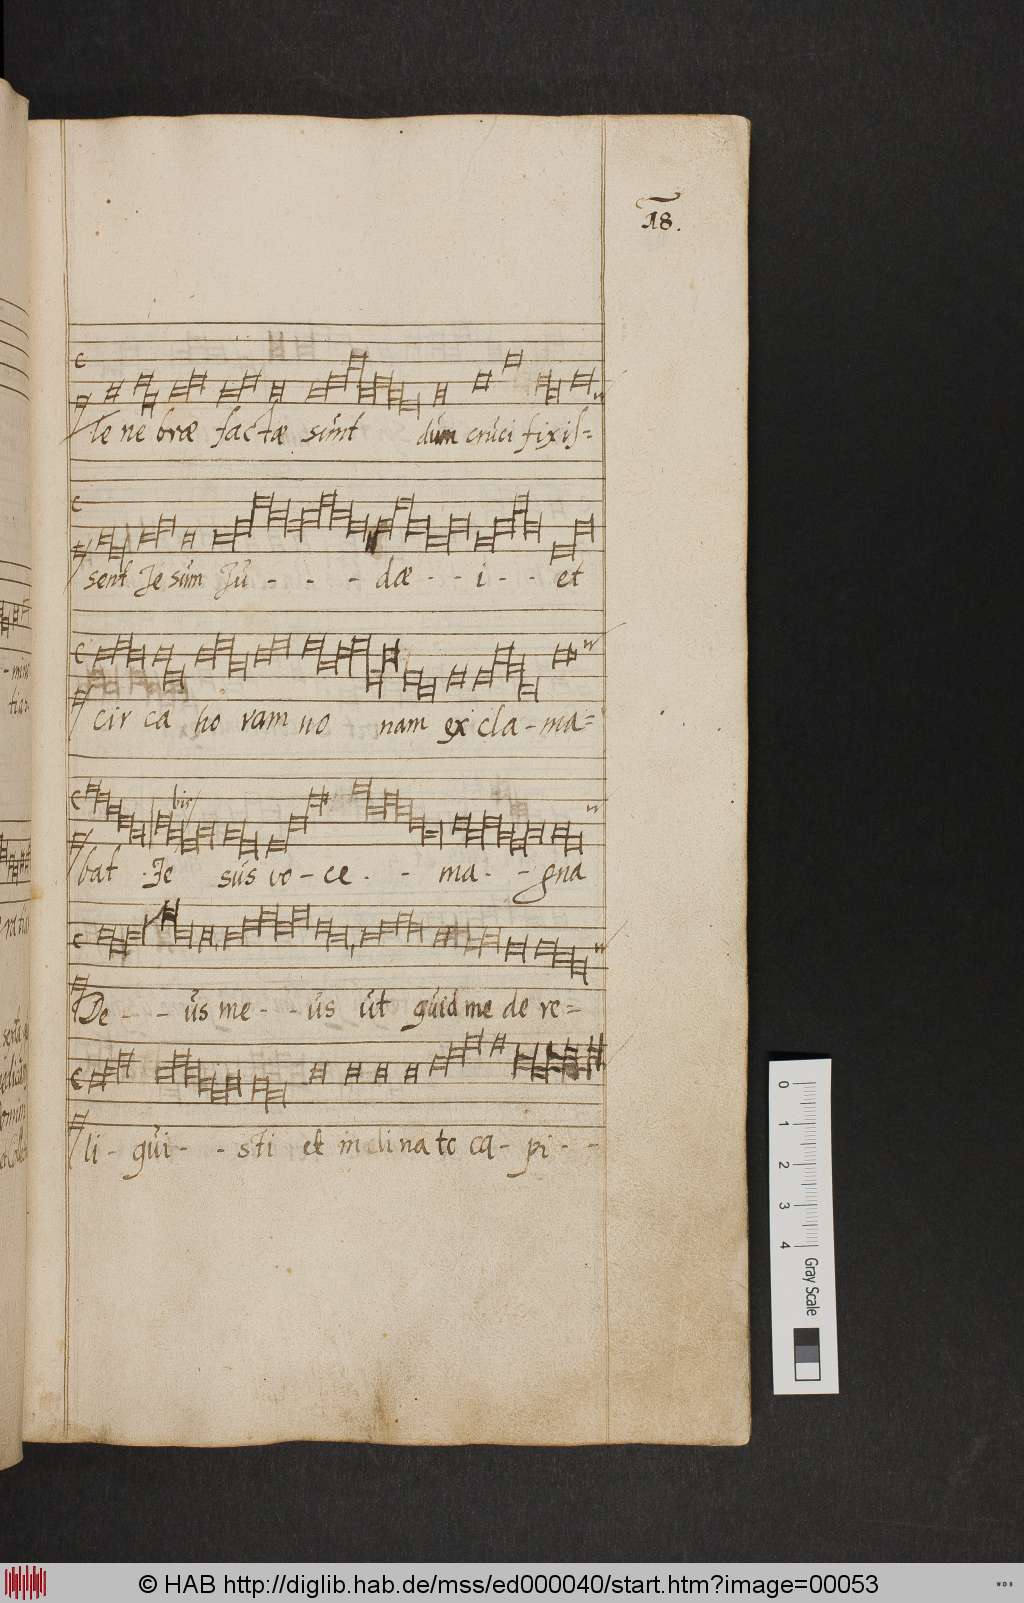 18.
Te ne bræ factæ sunt dum cruci fixiſ=
sent Je sum Ju - - - dæ - - i - - et
cir ca ho ram no nam ex cla - ma=
bis
bat Je sus vo - ce - - ma - - gna
De - - us me - - us ut quid me de re=
li - qui - - sti et inclina to ca - pi - -
0 1 2 3 4 Gray Scale
© HAB http://diglib.hab.de/mss/ed000040/start.htm?image=00053